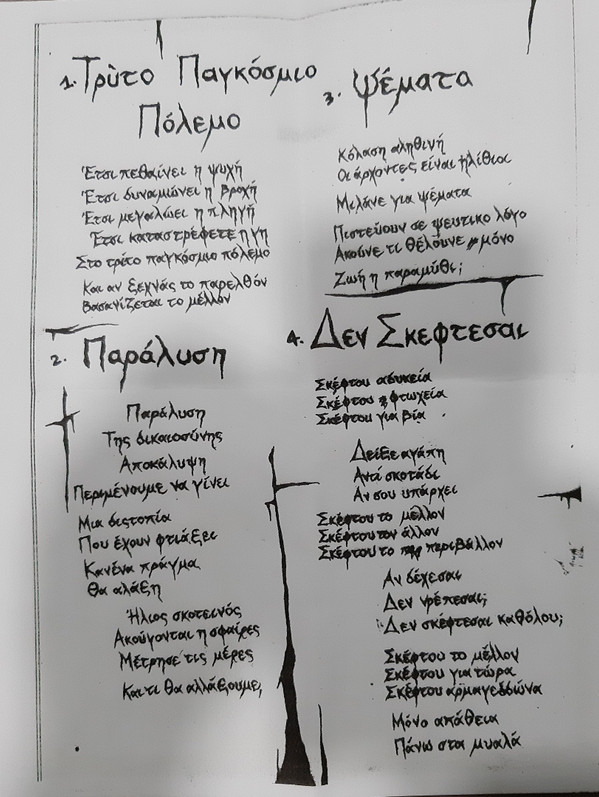 1. Τρὺτο Παγκόσμιο
Πόλεμο
Έτσι πεθαίνει η ψυχή
Έτσι δυναμώνει η βροχή
Έτσι μεγαλώει η πληγή
Έτσι καταστρέφετε η γη
Στο τρίτο παγκόσμιο πόλεμο
Και αν ξεχνάς το παρελθόν
Βασανίζεται το μέλλον
2. Παράλυση
Παράλυση
Της δικαιοσύνης
Αποκάλυψη
Περιμένουμε να γίνει
Μια διστοπία
Που έχουν φτιάξει
Κανένα πράγμα
Θα αλάξη
Ήλιος σκοτεινός
Ακούγονται η σφαίρες
Μέτρησε τις μέρες
Και τι θα αλλάξουμε;
3. Ψέματα
Κόλαση αληθινή
Οι άρχοντες είναι ηλίθιοι
Μιλάνε για ψέματα
Πιστεύουν σε ψευτικο λόγο
Ακούνε τι θέλουνε μόνο
Ζωή η παραμύθι;
4. Δεν Σκεφτεσαι
Σκέφτου αδυκεία
Σκέφτου φτωχεία
Σκέφτου για βία
Δείξε αγάπη
Αντί σκοτάδι
Αν σου υπάρχει
Σκέφτου το μέλλον
Σκέφτου τον άλλον
Σκέφτου το περιβάλλον
Αν δέχεσαι
Δεν ντρέπεσαι;
Δεν σκέφτεσαι καθόλου;
Σκέφτου το μέλλον
Σκέφτου για τώρα
Σκέφτου αρμαγεδδώνα
Μόνο απάθεια
Πάνω στα μυαλά